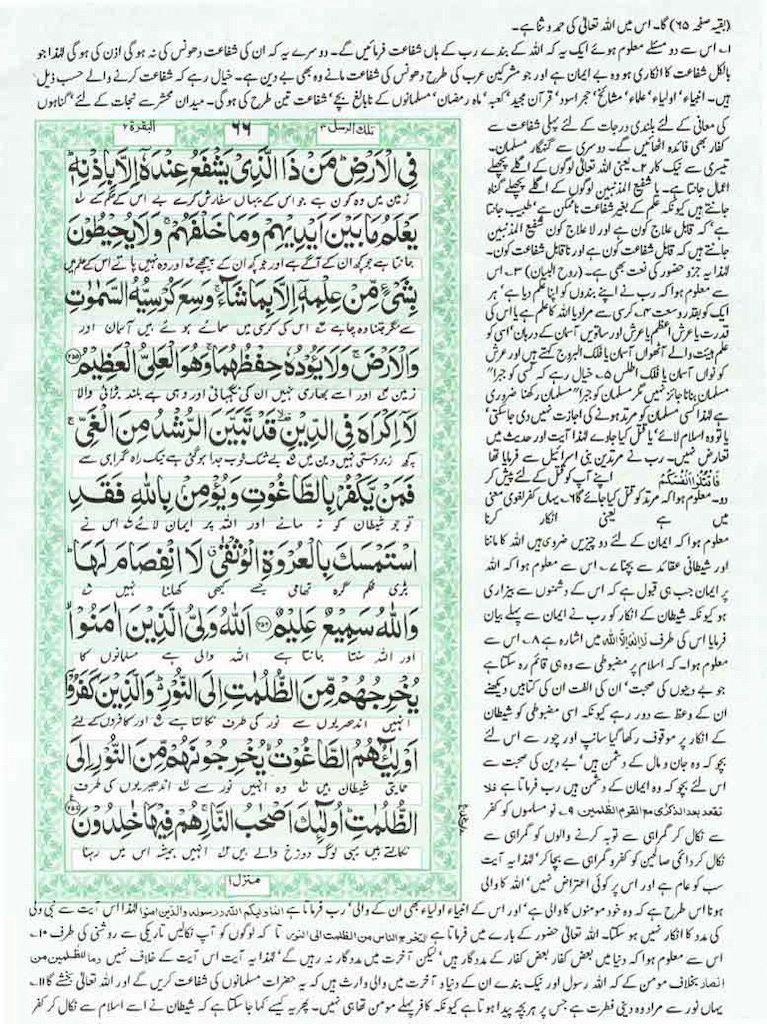 (بقیہ صفحہ ۶۵) گا۔ اس میں اللہ تعالیٰ کی حمد و ثنا ہے۔
۱۔ اس سے دو مسئلے معلوم ہوئے ایک یہ کہ اللہ کے بندے رب کے ہاں شفاعت فرمائیں گے۔ دوسرے یہ کہ ان کی شفاعت دھونس کی نہ ہو گی اذن کی ہو گی لہٰذا جو
بالکل شفاعت کا انکاری ہو وہ بے ایمان ہے اور جو مشرکین عرب کی طرح دھونس کی شفاعت مانے وہ بھی بے دین ہے۔ خیال رہے کہ شفاعت کرنے والے حسب ذیل
ہیں۔ انبیاء' اولیاء' علماء' مشائخ' حجر اسود' قرآن مجید' کعبہ' ماہ رمضان' مسلمانوں کے نابالغ بچے' شفاعت تین طرح کی ہو گی۔ میدان محشر سے نجات کے لئے' گناہوں
کی معافی کے لئے بلندی درجات کے لئے پہلی شفاعت سے
کفار بھی فائدہ اٹھائیں گے۔ دوسری سے گنہگار مسلمان۔
تیسری سے نیک کار ۲۔ یعنی اللہ تعالیٰ لوگوں کے اگلے پچھلے
اعمال جانتا ہے۔ یا شفیع المذنبین لوگوں کے اگلے پچھلے گناہ
جانتے ہیں کیونکہ علم کے بغیر شفاعت ناممکن ہے' طبیب جانتا
ہے' کہ قابل علاج کون ہے اور لا علاج کون شفیع المذنبین
جانتے ہیں کہ قابل شفاعت کون ہے اور ناقابل شفاعت کون۔
لہٰذا یہ جزو حضور کی نعت بھی ہے۔ (روح البیان) ۳۔ اس
سے معلوم ہوا کہ رب نے اپنے بندوں کو اپنا علم دیا ہے' ہر
ایک کو بقدر وسعت ۴۔ کرسی سے مراد یا اللہ کا علم ہے یا اس کی
قدرت یا عرش اعظم یا عرش اور ساتویں آسمان کے درمیان' اسی کو
علم ہیئت والے آٹھواں آسمان یا فلک البروج کہتے ہیں اور عرش
کو نواں آسمان یا فلک اطلس ۵۔ خیال رہے کہ کسی کو جبرا"
مسلمان بنانا جائز نہیں مگر مسلمان کو جبرا" مسلمان رکھنا ضروری
ہے لہٰذا کسی مسلمان کو مرتد ہونے کی اجازت نہیں دی جا سکتی'
یا تو وہ اسلام لائے' یا قتل کیا جاوے لہٰذا آیت اور حدیث میں
تعارض نہیں۔ رب نے مرتدین بنی اسرائیل سے فرمایا تھا
فَاقْتُلُوْا اَنْفُسَكُمْ اپنے آپ کو قتل کے لئے پیش کر
دو۔ معلوم ہوا کہ مرتد کو قتل کیا جائے گا ۶۔ یہاں کفر لغوی معنی
میں ہے یعنی انکار کرنا
معلوم ہوا کہ ایمان کے لئے دو چیزیں ضروری ہیں اللہ کا ماننا
اور شیطانی عقائد سے بچنا ۷۔ اس سے معلوم ہوا کہ اللہ
پر ایمان جب ہی قبول ہے کہ اس کے دشمنوں سے بیزاری
ہو کیونکہ شیطان کے انکار کو رب نے ایمان سے پہلے بیان
فرمایا اس کی طرف لا الہ الا اللہ میں اشارہ ہے ۸۔ اس سے
معلوم ہوا۔ کہ اسلام پر مضبوطی سے وہ ہی قائم رہ سکتا ہے
جو بے دینوں کی صحبت' ان کی الفت ان کی کتابیں دیکھنے
ان کے وعظ سے دور رہے کیونکہ اسی مضبوطی کو شیطان
کے انکار پر موقوف رکھا گیا سانپ اور چور سے اس لئے
بچو کہ وہ جان و مال کے دشمن ہیں' بے دین کی صحبت سے
اس لئے بچو کہ وہ ایمان کے دشمن ہیں رب فرماتا ہے فلا
تقعد بعد الذکری مع القوم الظلمین ۹۔ نو مسلموں کو کفر
سے نکال کر گمراہی سے توبہ کرنے والوں کو گمراہی سے
نکال کر دائمی صالحین کو کفر و گمراہی سے بچا کر' لہٰذا یہ آیت
سب کو عام ہے اور اس پر کوئی اعتراض نہیں' اللہ کا والی
تلك الرسل ۳
۶۶
البقرة ۲
فِی الْاَرْضِ ؕ مَنْ ذَا الَّذِیْ یَشْفَعُ عِنْدَهٗۤ اِلَّا بِاِذْنِهٖ ؕ
زمین میں وہ کون ہے جو اس کے یہاں سفارش کرے بے اس کے حکم کے
یَعْلَمُ مَا بَیْنَ اَیْدِیْهِمْ وَمَا خَلْفَهُمْ ۚ وَلَا یُحِیْطُوْنَ
جانتا ہے جو کچھ ان کے آگے ہے اور جو کچھ ان کے پیچھے اور وہ نہیں پاتے اس کے علم میں
بِشَیْءٍ مِّنْ عِلْمِهٖۤ اِلَّا بِمَا شَآءَ ۚ وَسِعَ كُرْسِیُّهُ السَّمٰوٰتِ
سے مگر جتنا وہ چاہے اس کی کرسی میں سمائے ہوئے ہیں آسمان اور
وَالْاَرْضَ ۚ وَلَا یَـُٔوْدُهٗ حِفْظُهُمَا ۚ وَهُوَ الْعَلِیُّ الْعَظِیْمُ ۲۵۵
زمین اور اسے بھاری نہیں ان کی نگہبانی اور وہی ہے بلند بڑائی والا
لَاۤ اِكْرَاهَ فِی الدِّیْنِ ۙ قَدْ تَّبَیَّنَ الرُّشْدُ مِنَ الْغَیِّ ۚ
کچھ زبردستی نہیں دین میں بے شک خوب جدا ہو گئی ہے نیک راہ گمراہی سے
فَمَنْ یَّكْفُرْ بِالطَّاغُوْتِ وَیُؤْمِنْۢ بِاللّٰهِ فَقَدِ
تو جو شیطان کو نہ مانے اور اللہ پر ایمان لائے اس نے
اسْتَمْسَكَ بِالْعُرْوَةِ الْوُثْقٰی ۗ لَا انْفِصَامَ لَهَا ؕ
بڑی محکم گرہ تھامی جسے کبھی کھلنا نہیں
وَاللّٰهُ سَمِیْعٌ عَلِیْمٌ ۲۵۶ اَللّٰهُ وَلِیُّ الَّذِیْنَ اٰمَنُوْا ۙ
اور اللہ سنتا جانتا ہے اللہ والی ہے مسلمانوں کا
یُخْرِجُهُمْ مِّنَ الظُّلُمٰتِ اِلَی النُّوْرِ ؕ وَالَّذِیْنَ كَفَرُوْۤا
انہیں اندھیریوں سے نور کی طرف نکالتا ہے اور کافروں کے لئے
اَوْلِیٰٓـُٔهُمُ الطَّاغُوْتُ ۙ یُخْرِجُوْنَهُمْ مِّنَ النُّوْرِ اِلَی
حمایتی شیطان ہیں وہ انہیں نور سے اندھیریوں کی طرف
الظُّلُمٰتِ ؕ اُولٰٓىِٕكَ اَصْحٰبُ النَّارِ ۚ هُمْ فِیْهَا خٰلِدُوْنَ ۲۵۷
نکالتے ہیں یہی لوگ دوزخ والے ہیں انہیں ہمیشہ اس میں رہنا
منزل ۱
ہونا اس طرح ہے کہ وہ خود مومنوں کا والی ہے' اور اس کے انبیاء اولیاء بھی ان کے والی' رب فرماتا ہے انما ولیکم اللہ و رسولہ والذین امنوا لہٰذا اس آیت سے نبی ولی
کی مدد کا انکار نہیں ہو سکتا۔ اللہ تعالیٰ حضور کے بارے میں فرماتا ہے لتخرج الناس من الظلمت الی النور تا کہ لوگوں کو آپ نکالیں تاریکی سے روشنی کی طرف ۱۰۔
اس سے معلوم ہوا کہ دنیا میں بعض کفار بعض کفار کے مددگار ہیں' لیکن آخرت میں مددگار نہ رہیں گے' لہٰذا یہ آیت اس آیت کے خلاف نہیں وما للظلمین من
انصار بخلاف مومن کے کہ اللہ رسول اور نیک بندے ان کے دنیا و آخرت میں والی وارث ہیں کہ یہ حضرات مسلمانوں کی شفاعت کریں گے اور اللہ تعالیٰ بخشے گا ۱۱۔
یہاں نور سے مراد وہ دینی فطرت ہے جس پر ہر بچہ پیدا ہوتا ہے کیونکہ کافر پہلے مومن تھا ہی نہیں۔ پھر یہ کیسے کہا جا سکتا ہے کہ شیطان نے اسے اسلام سے نکال کر کفر